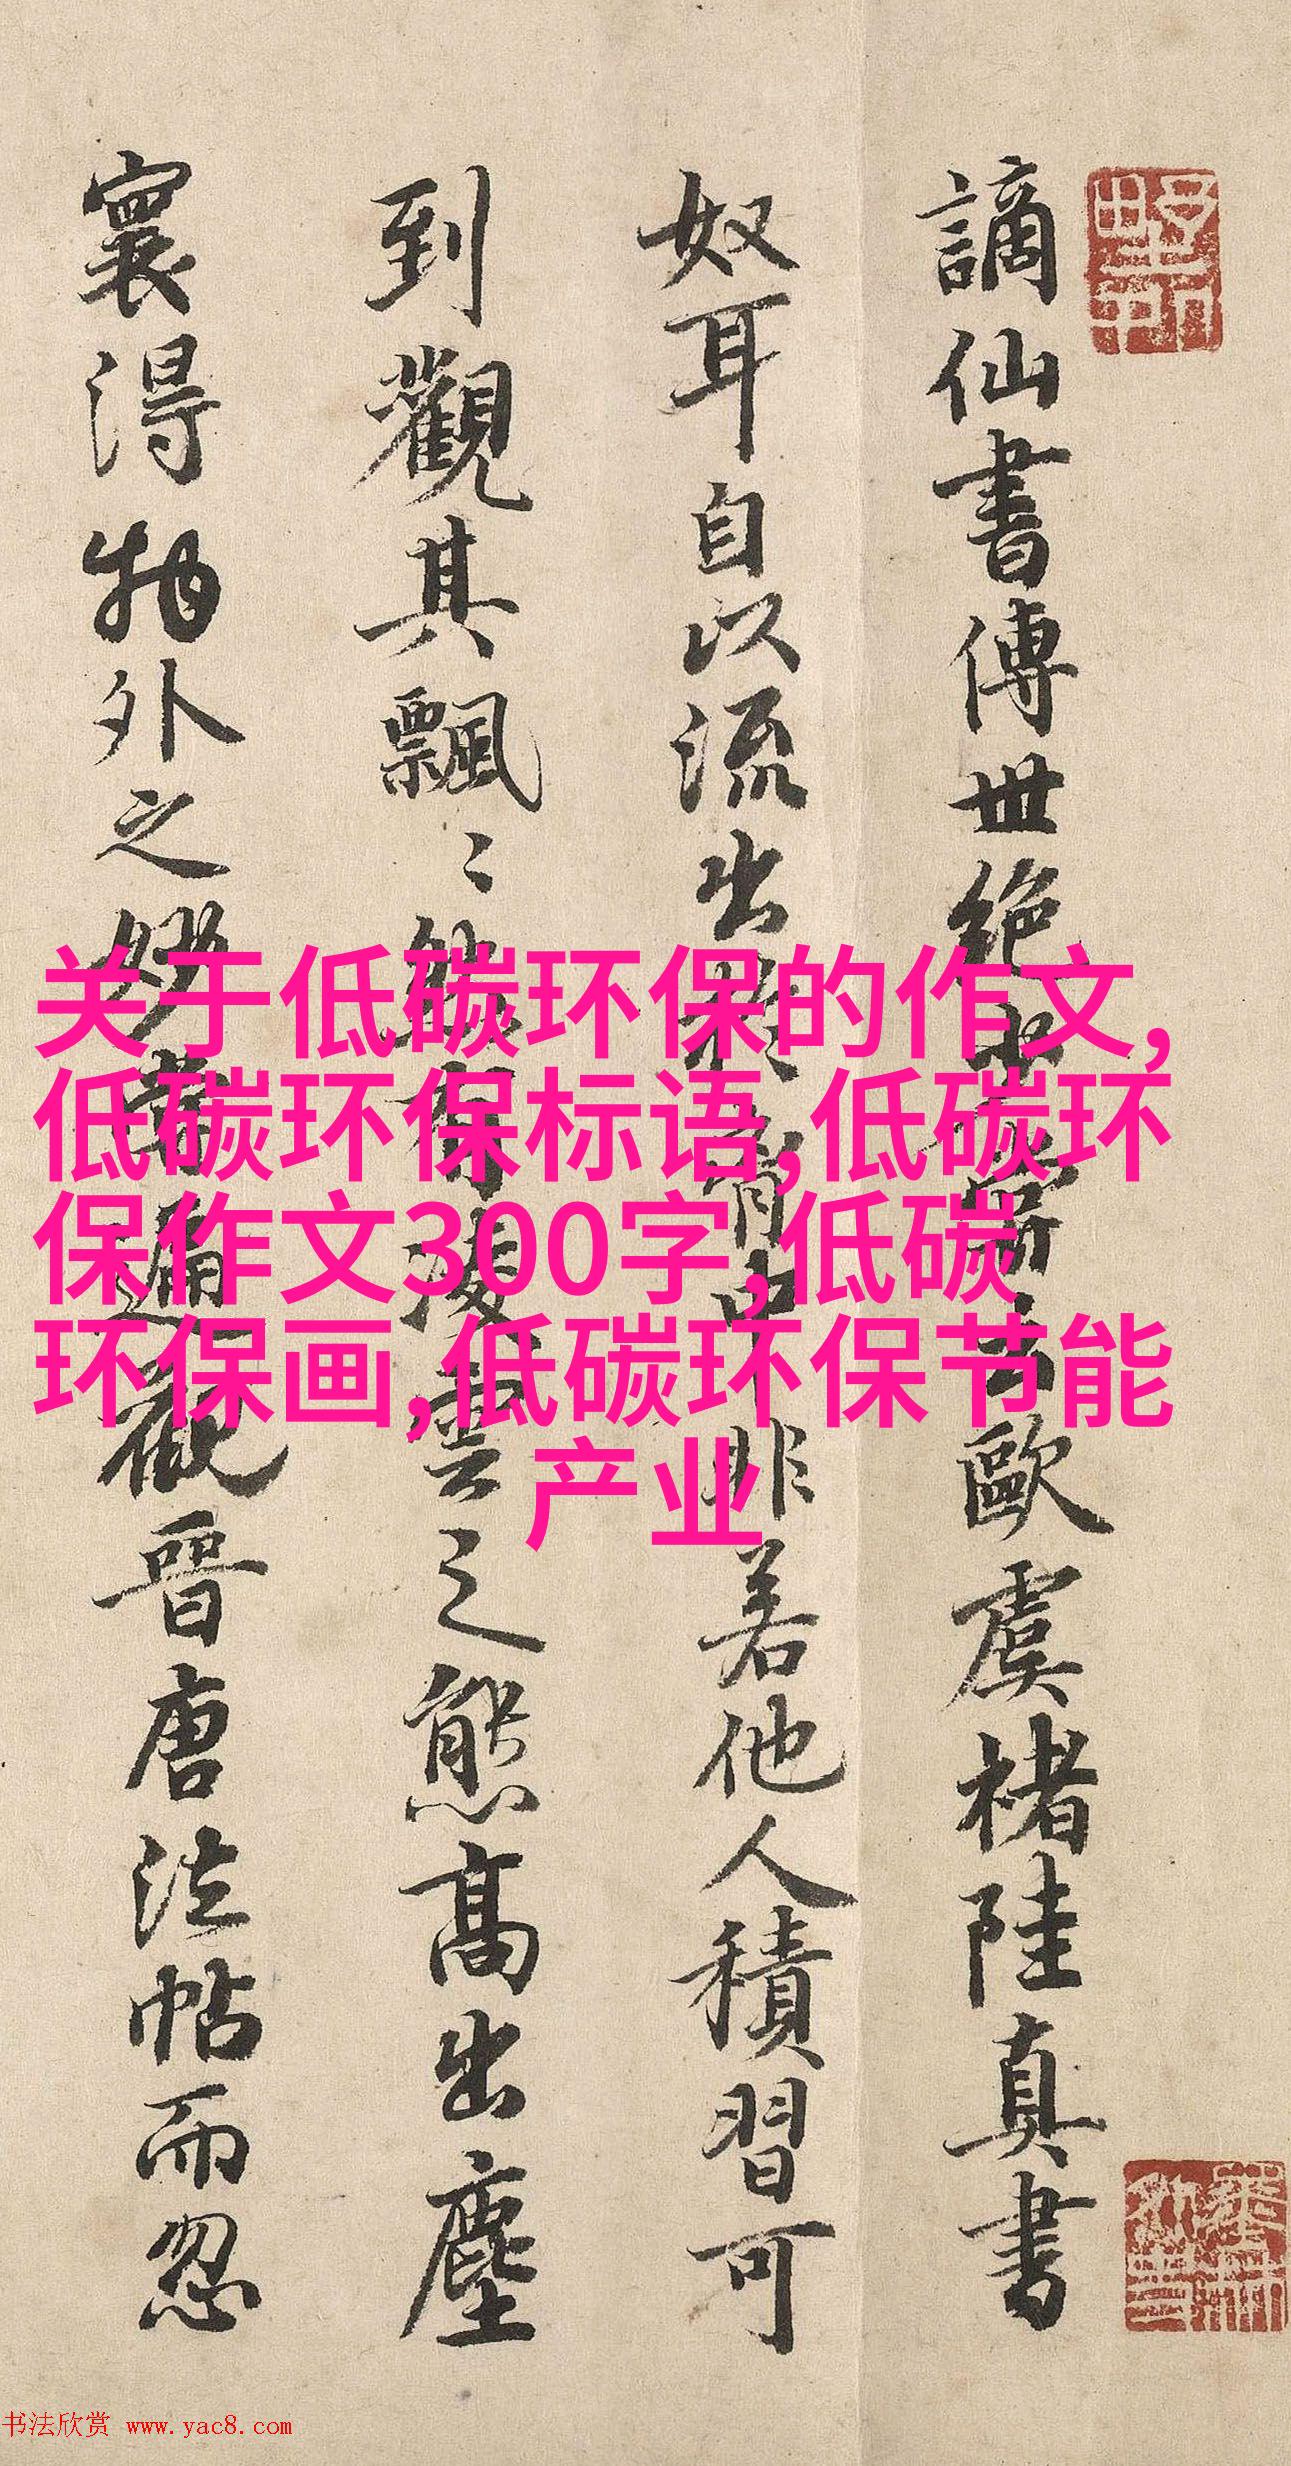 謫仙書傳世絶少嘗云歐虞褚陸真書
奴耳自以流出於胷中非若他人積習可
到觀其飄〻然有凌雲之態高出塵
寰得物外之妙嘗遍觀晉唐法帖而忽
关于低碳环保的作文,
低碳环保标语,低碳环
保作文300字,低碳
环保画,低碳环保节能
产业
书法欣赏 www.yac8.com